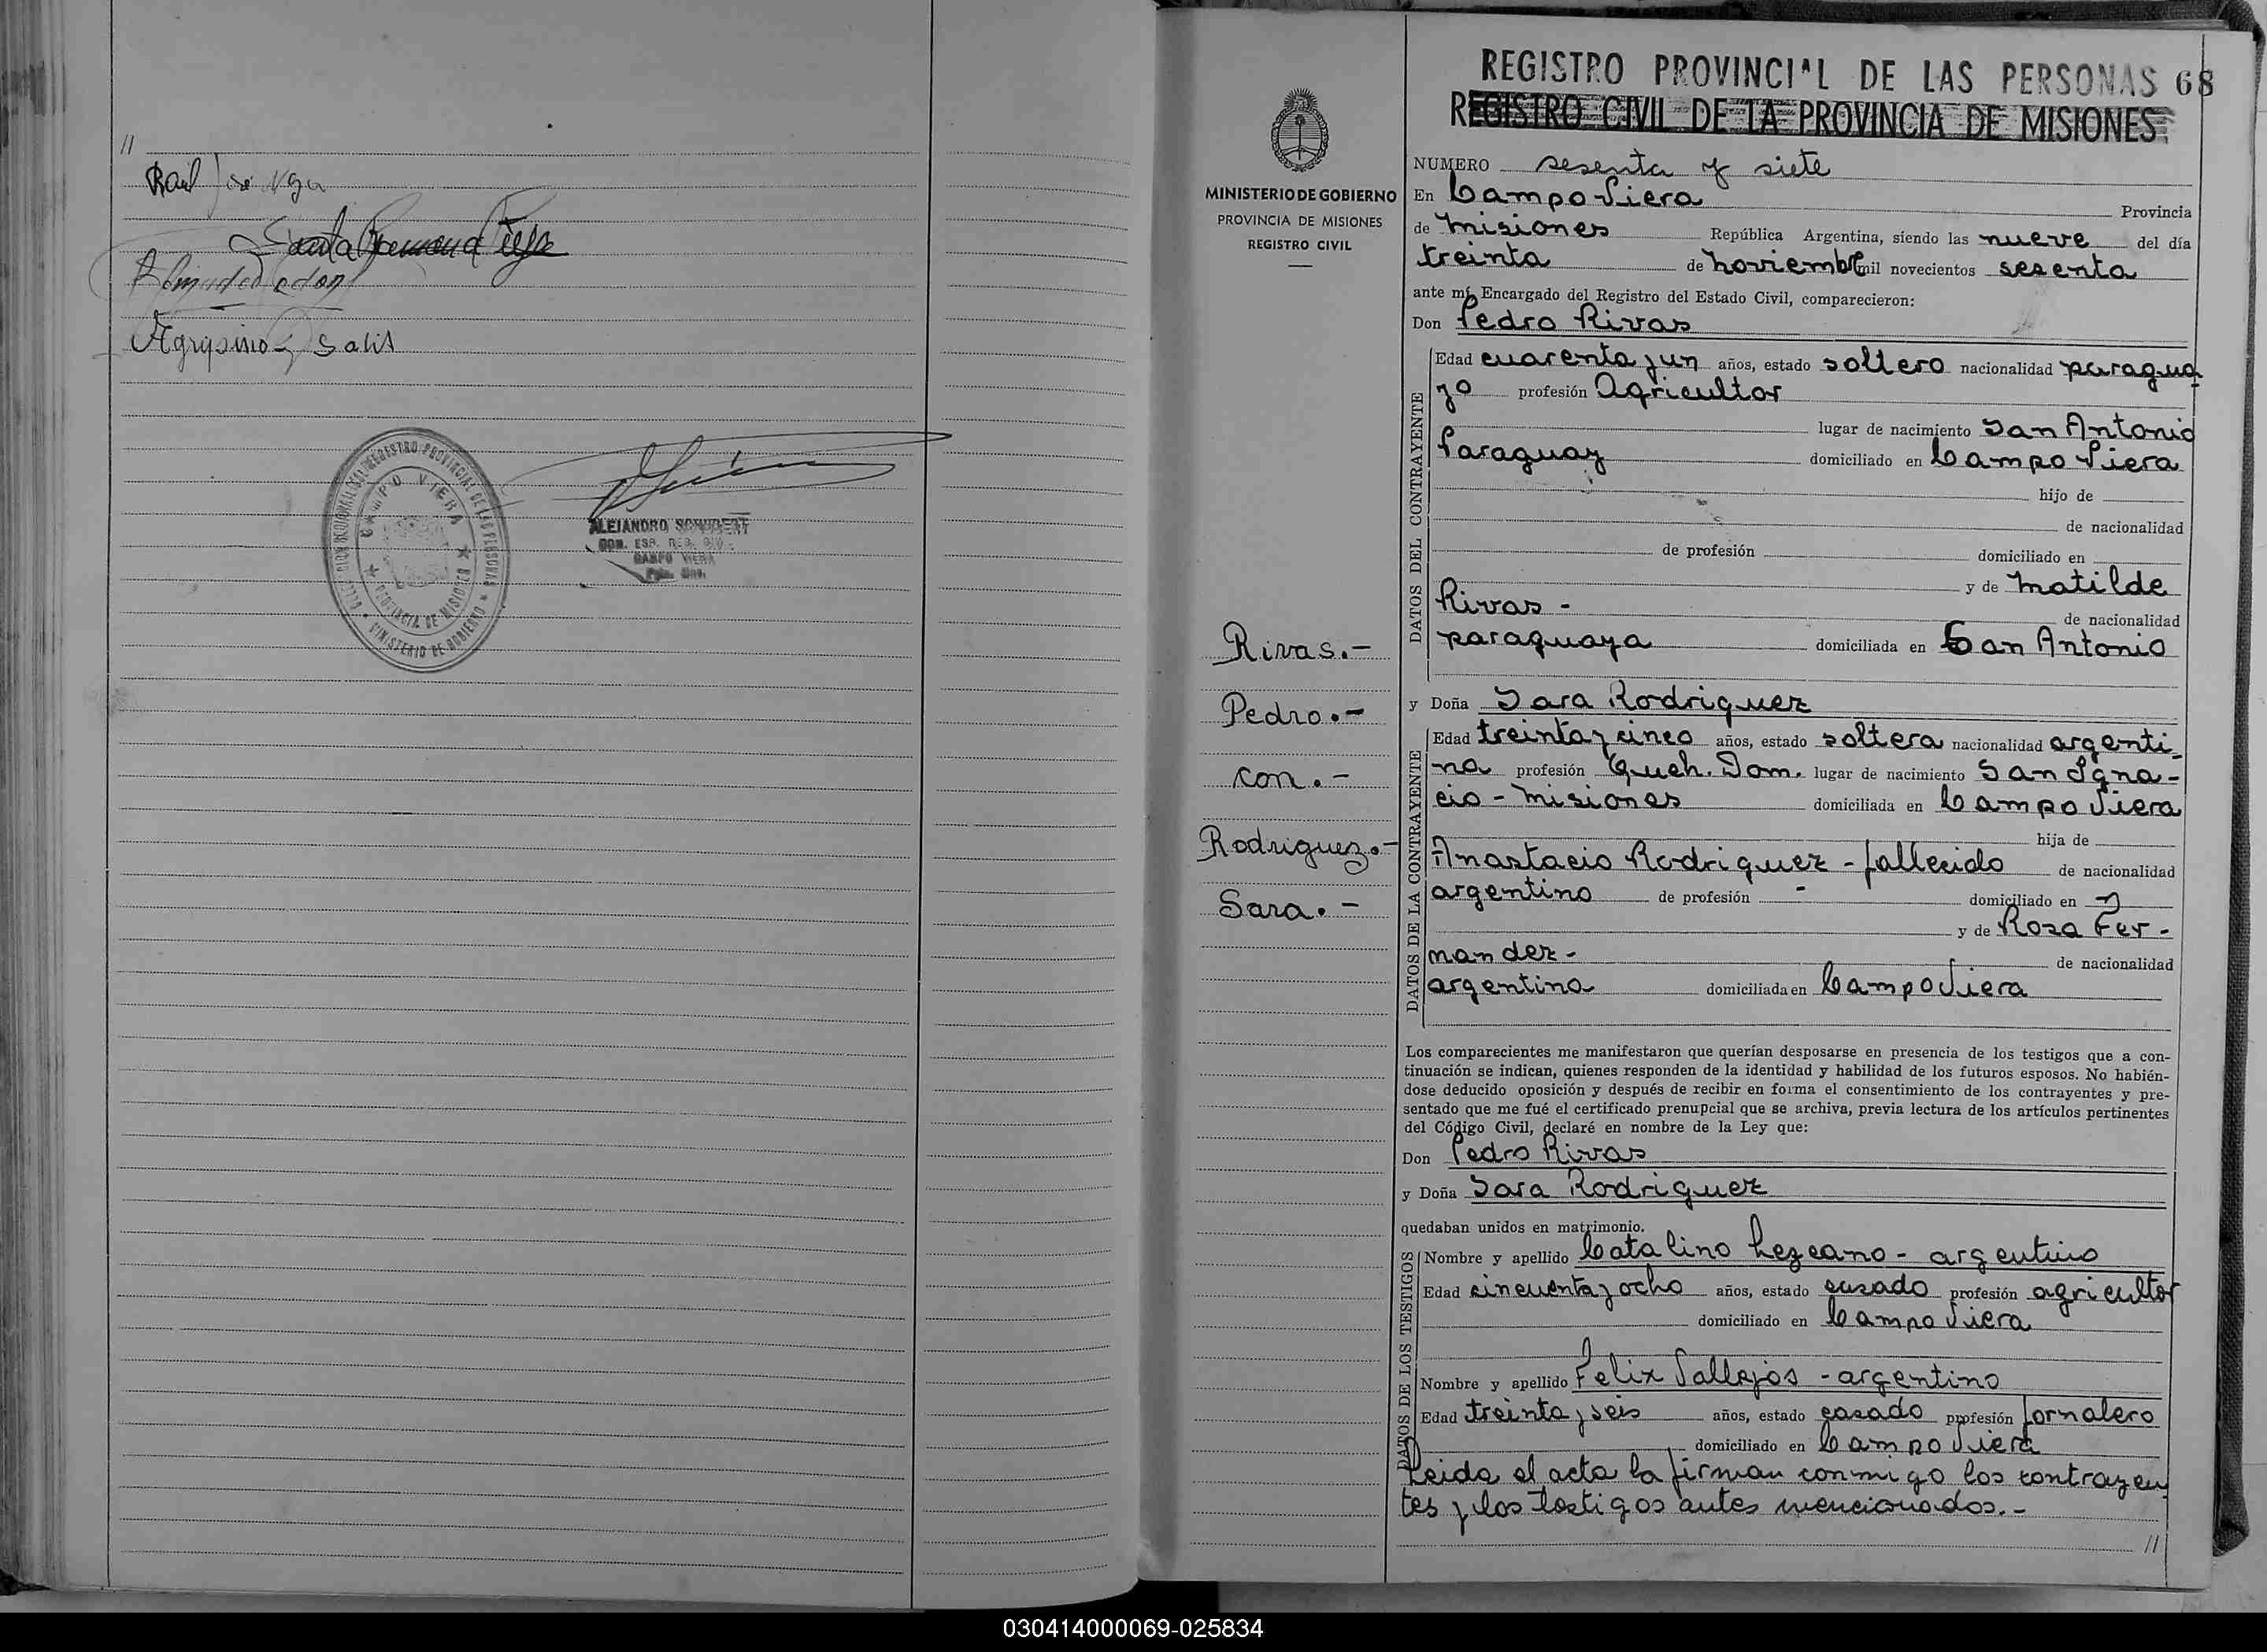 //
Raul José
Santa Ramona
Agripino Salis
REGISTRO PROVINCIAL DE LAS PERSONAS
CAMPO VIERA
PROVINCIA DE MISIONES
MINISTERIO DE GOBIERNO
ALEJANDRO SCHUBERT
CAMPO VIERA
MINISTERIO DE GOBIERNO
PROVINCIA DE MISIONES
REGISTRO CIVIL
Rivas.-
Pedro.-
con.-
Rodriguez.-
Sara.-
REGISTRO PROVINCIAL DE LAS PERSONAS 68
REGISTRO CIVIL DE LA PROVINCIA DE MISIONES
NUMERO sesenta y siete
En Campo Viera Provincia
de Misiones República Argentina, siendo las nueve del día
treinta de noviembre mil novecientos sesenta
ante mí, Encargado del Registro del Estado Civil, comparecieron:
Don Pedro Rivas
DATOS DEL CONTRAYENTE
Edad cuarenta y un años, estado soltero nacionalidad paragua
yo profesión Agricultor
lugar de nacimiento San Antonio
Paraguay domiciliado en Campo Viera
hijo de
de nacionalidad
de profesión domiciliado en
y de Matilde
Rivas - de nacionalidad
paraguaya domiciliada en San Antonio
y Doña Sara Rodriguez
DATOS DE LA CONTRAYENTE
Edad treinta y cinco años, estado soltera nacionalidad argenti_
na profesión Queh. Dom. lugar de nacimiento San Igna-
cio - Misiones domiciliada en Campo Viera
hija de
Anastacio Rodriguez - fallecido de nacionalidad
argentino de profesión - domiciliado en
y de Rosa Fer-
nandez - de nacionalidad
argentina domiciliada en Campo Viera
Los comparecientes me manifestaron que querían desposarse en presencia de los testigos que a con-
tinuación se indican, quienes responden de la identidad y habilidad de los futuros esposos. No habién-
dose deducido oposición y después de recibir en forma el consentimiento de los contrayentes y pre-
sentado que me fué el certificado prenupcial que se archiva, previa lectura de los artículos pertinentes
del Código Civil, declaré en nombre de la Ley que:
Don Pedro Rivas
y Doña Sara Rodriguez
quedaban unidos en matrimonio.
DATOS DE LOS TESTIGOS
Nombre y apellido Catalino Lezcano - argentino
Edad cincuenta y ocho años, estado casado profesión agricultor
domiciliado en Campo Viera
Nombre y apellido Felix Vallejos - argentino
Edad treinta y seis años, estado casado profesión Jornalero
domiciliado en Campo Viera
Leida el acta la firman conmigo los contrayen
tes y los testigos antes mencionados.-
//
030414000069-025834